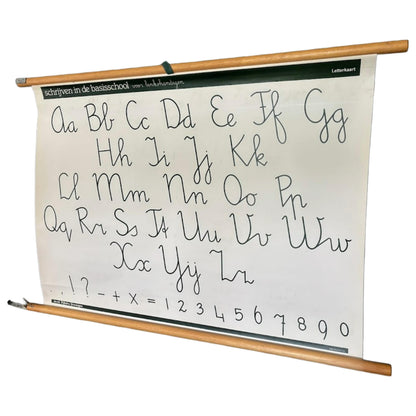 schrijven in de basisschool
Letterkaart
Aa Bb Cc Dd Ee Ff Gg
Hh Ii Jj Kk
Ll Mm Nn Oo Pp
Qq Rr Ss Tt Uu Vv Ww
Xx IJij Zz
. , ! ? – + x = 1 2 3 4 5 6 7 8 9 0